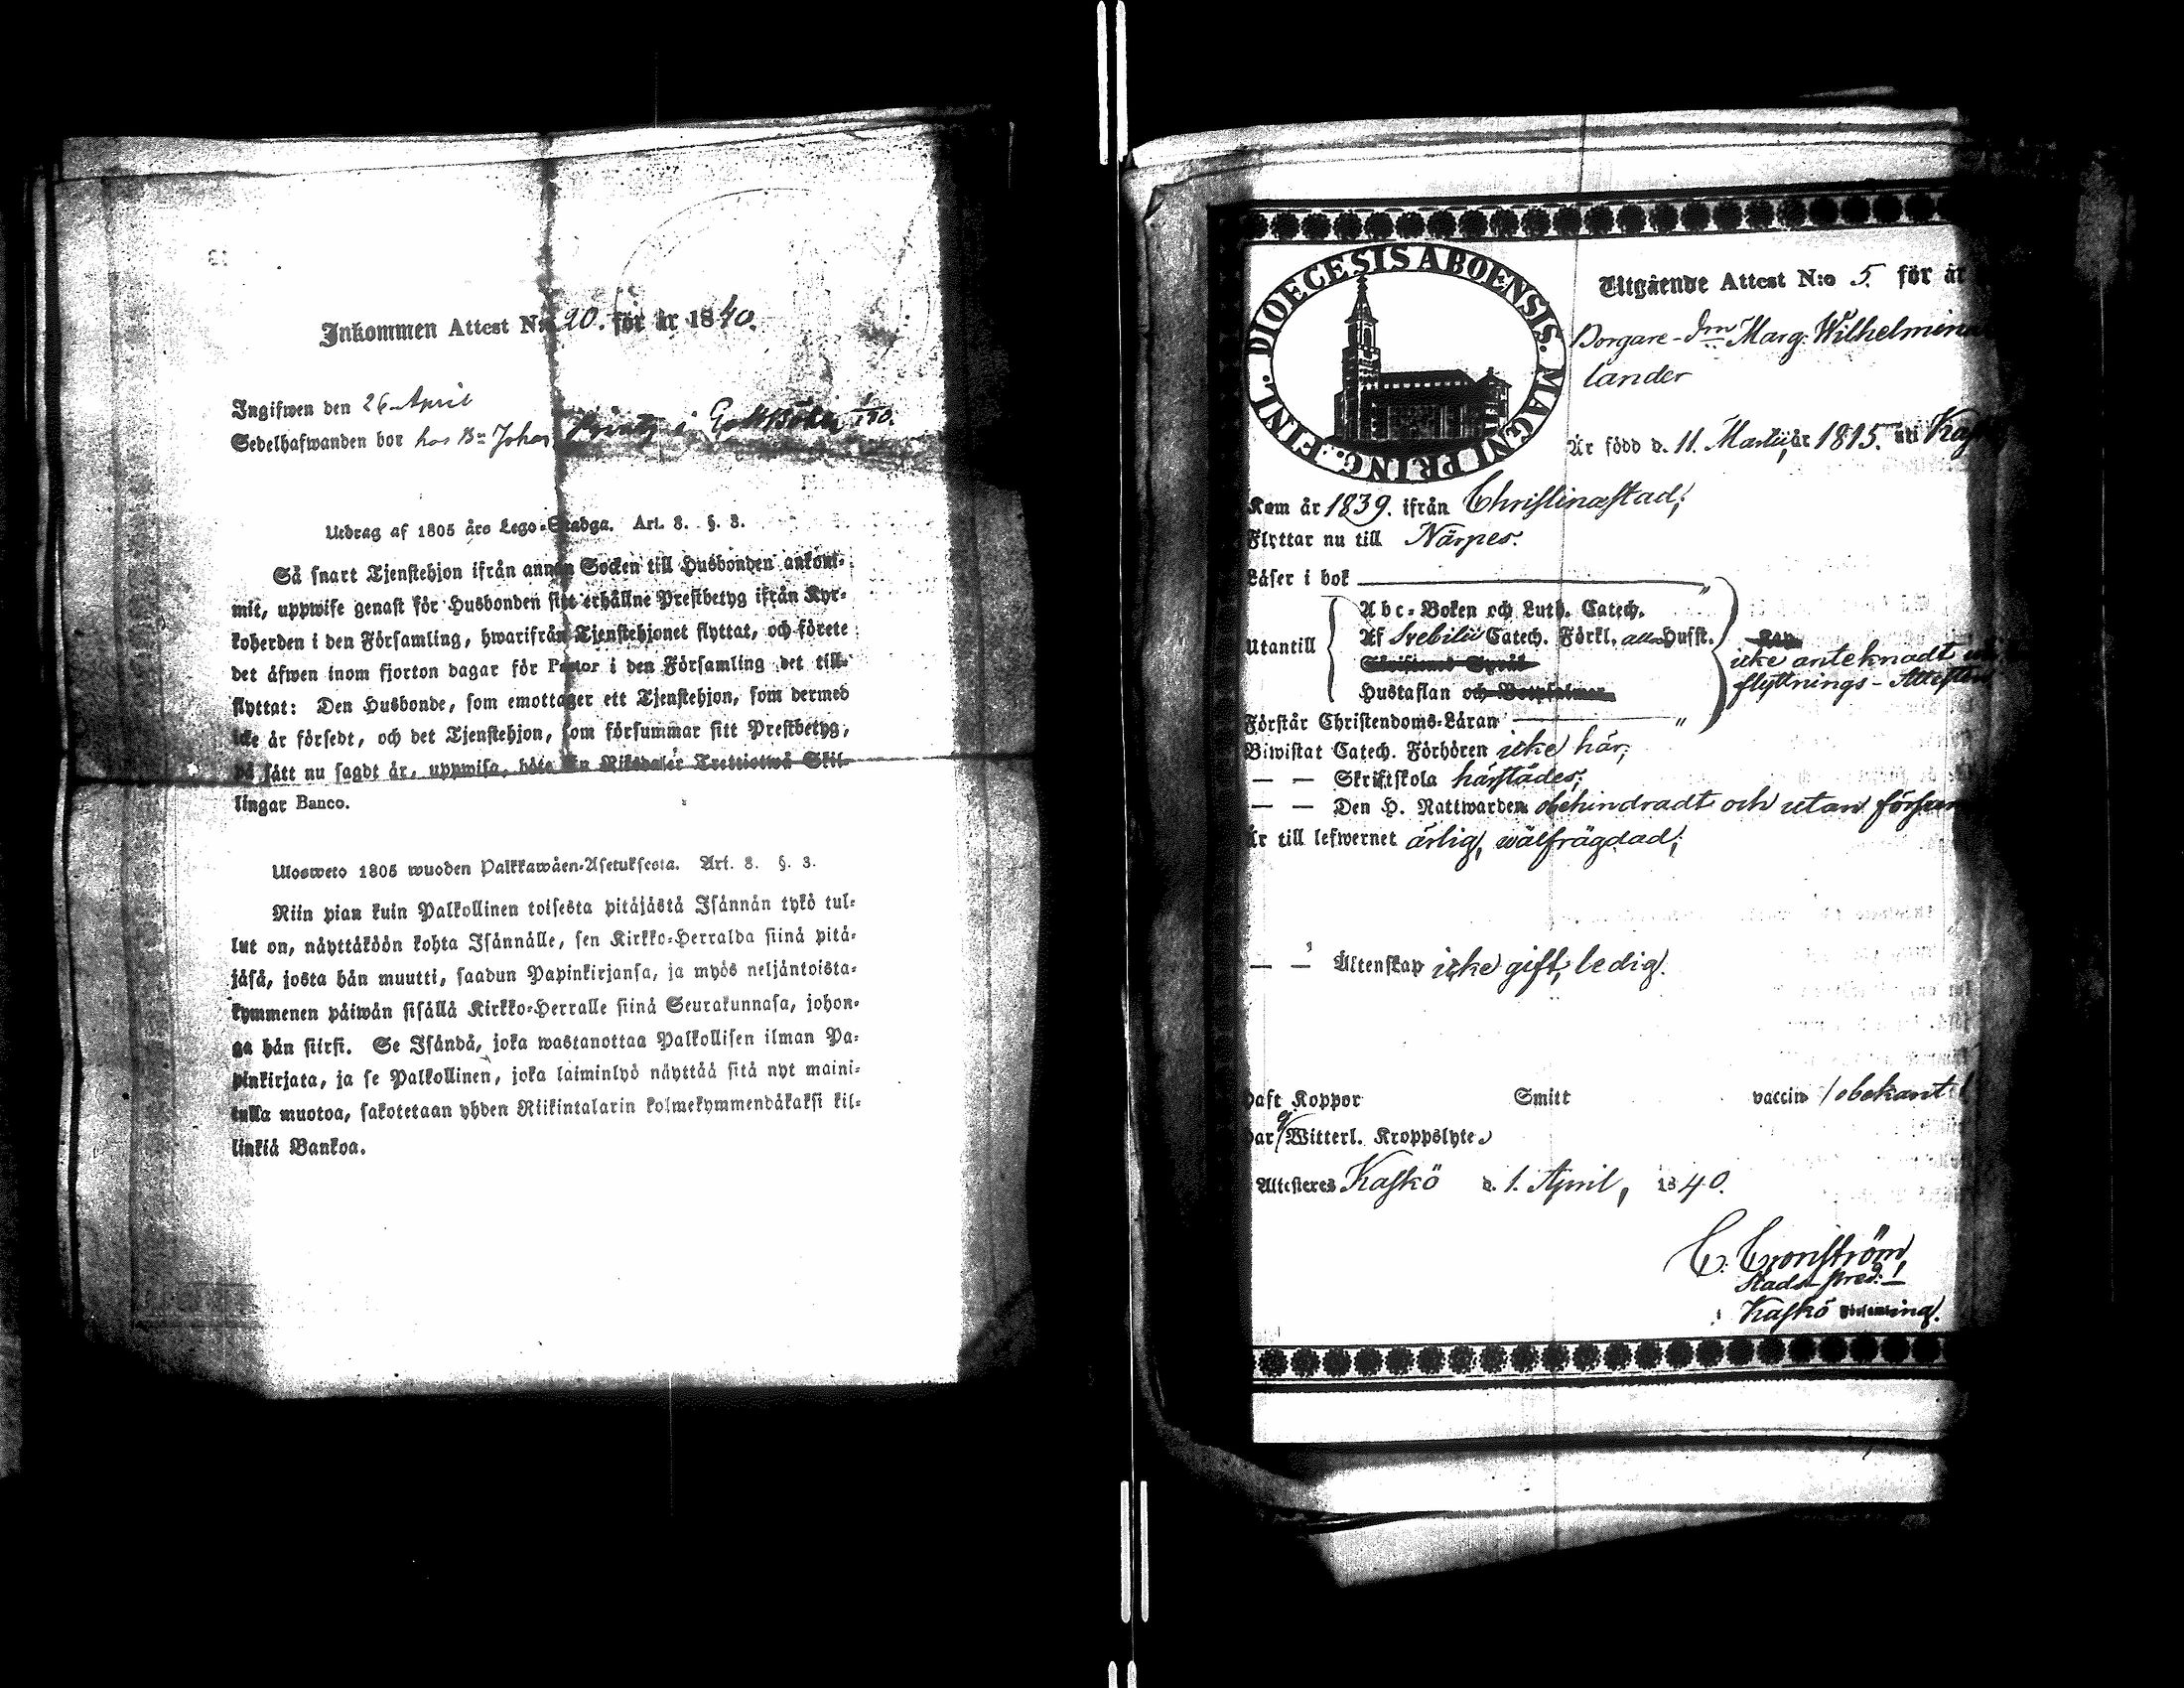 Inkommen Attest N:o 20. för år 1840.
Ingifwen den 26 April
Sedelhafwanden bor hos Bn Johan i 150.
Utdrag af 1805 års Lego-Stadga. Art. 8. §. 3.
Så snart Tjenstehjon ifrån annan Socken till Husbonden ankom-
mit, uppwise genast för Husbonden sitt erhållne Prestbetyg ifrån Kyr-
koherden i den Församling, hwarifrån Tjenstehjonet flyttat, och förete
det äfwen inom fjorton dagar för Pastor i den Församling det till-
flyttat: Den Husbonde, som emottager ett Tjenstehjon, som dermed
icke är försedt, och det Tjenstehjon, som försummar sitt Prestbetyg,
på sått nu sagdt är, uppwisa, böte En Riksdaler Trettiotwå Skil-
lingar Banco.
Ulosweto 1805 wuoden Palkkawäen-Asetuksesta. Art. 8. §. 3.
Niin pian kuin Palkollinen toisesta pitäjästä Isännän tykö tul-
lut on, näyttäköön kohta Isännälle, sen Kirkko-Herralda siinä pitä-
jäsä, josta hän muutti, saadun Papinkirjansa, ja myös neljäntoista-
kymmenen päiwän sisällä Kirkko-Herralle siinä Seurakunnasa, johon-
ga hän siirsi. Se Isändä, joka wastanottaa Palkollisen ilman Pa-
pinkirjata, ja se Palkollinen, joka laiminlyö näyttää sitä nyt maini-
tulla muotoa, sakotetaan yhden Riikintalarin kolmekymmendäkaksi kil-
linkiä Bankoa.
DIOECESIS ABOENSIS. MAGNI PRINC. FINL.
Utgående Attest N:o 5. för år
Borgare-Dm Marg. Wilhelmina
lander
Är född d. 11. Martii, år 1815. uti Kaskö
Kom år 1839. ifrån Christinæstad;
Flyttar nu till Närpes.
Läser i bok "
Abc-Boken och Luth. Catech.
Utantill Af Svebilii Catech. Förkl. Husst.
Skriftens Språk
icke anteknadt
Hustaflan och Botpsalmer
flyttnings-Attesten
Förstår Christendoms-Läran "
Biwistat Catech. Förhören icke här;
— — Skriftskola härstädes;
— — Den H. Nattwarden obehindradt och utan försum
Är till lefwernet ärlig, wälfrägdad;
— — Äktenskap icke gift, ledig.
haft Koppor Smitt vaccin / obekant
har ej Witterl. Kroppslyte
Attesteres Kaskö d. 1. April, 1840.
C. Cronström
Stads-pred.
Kaskö Församling.